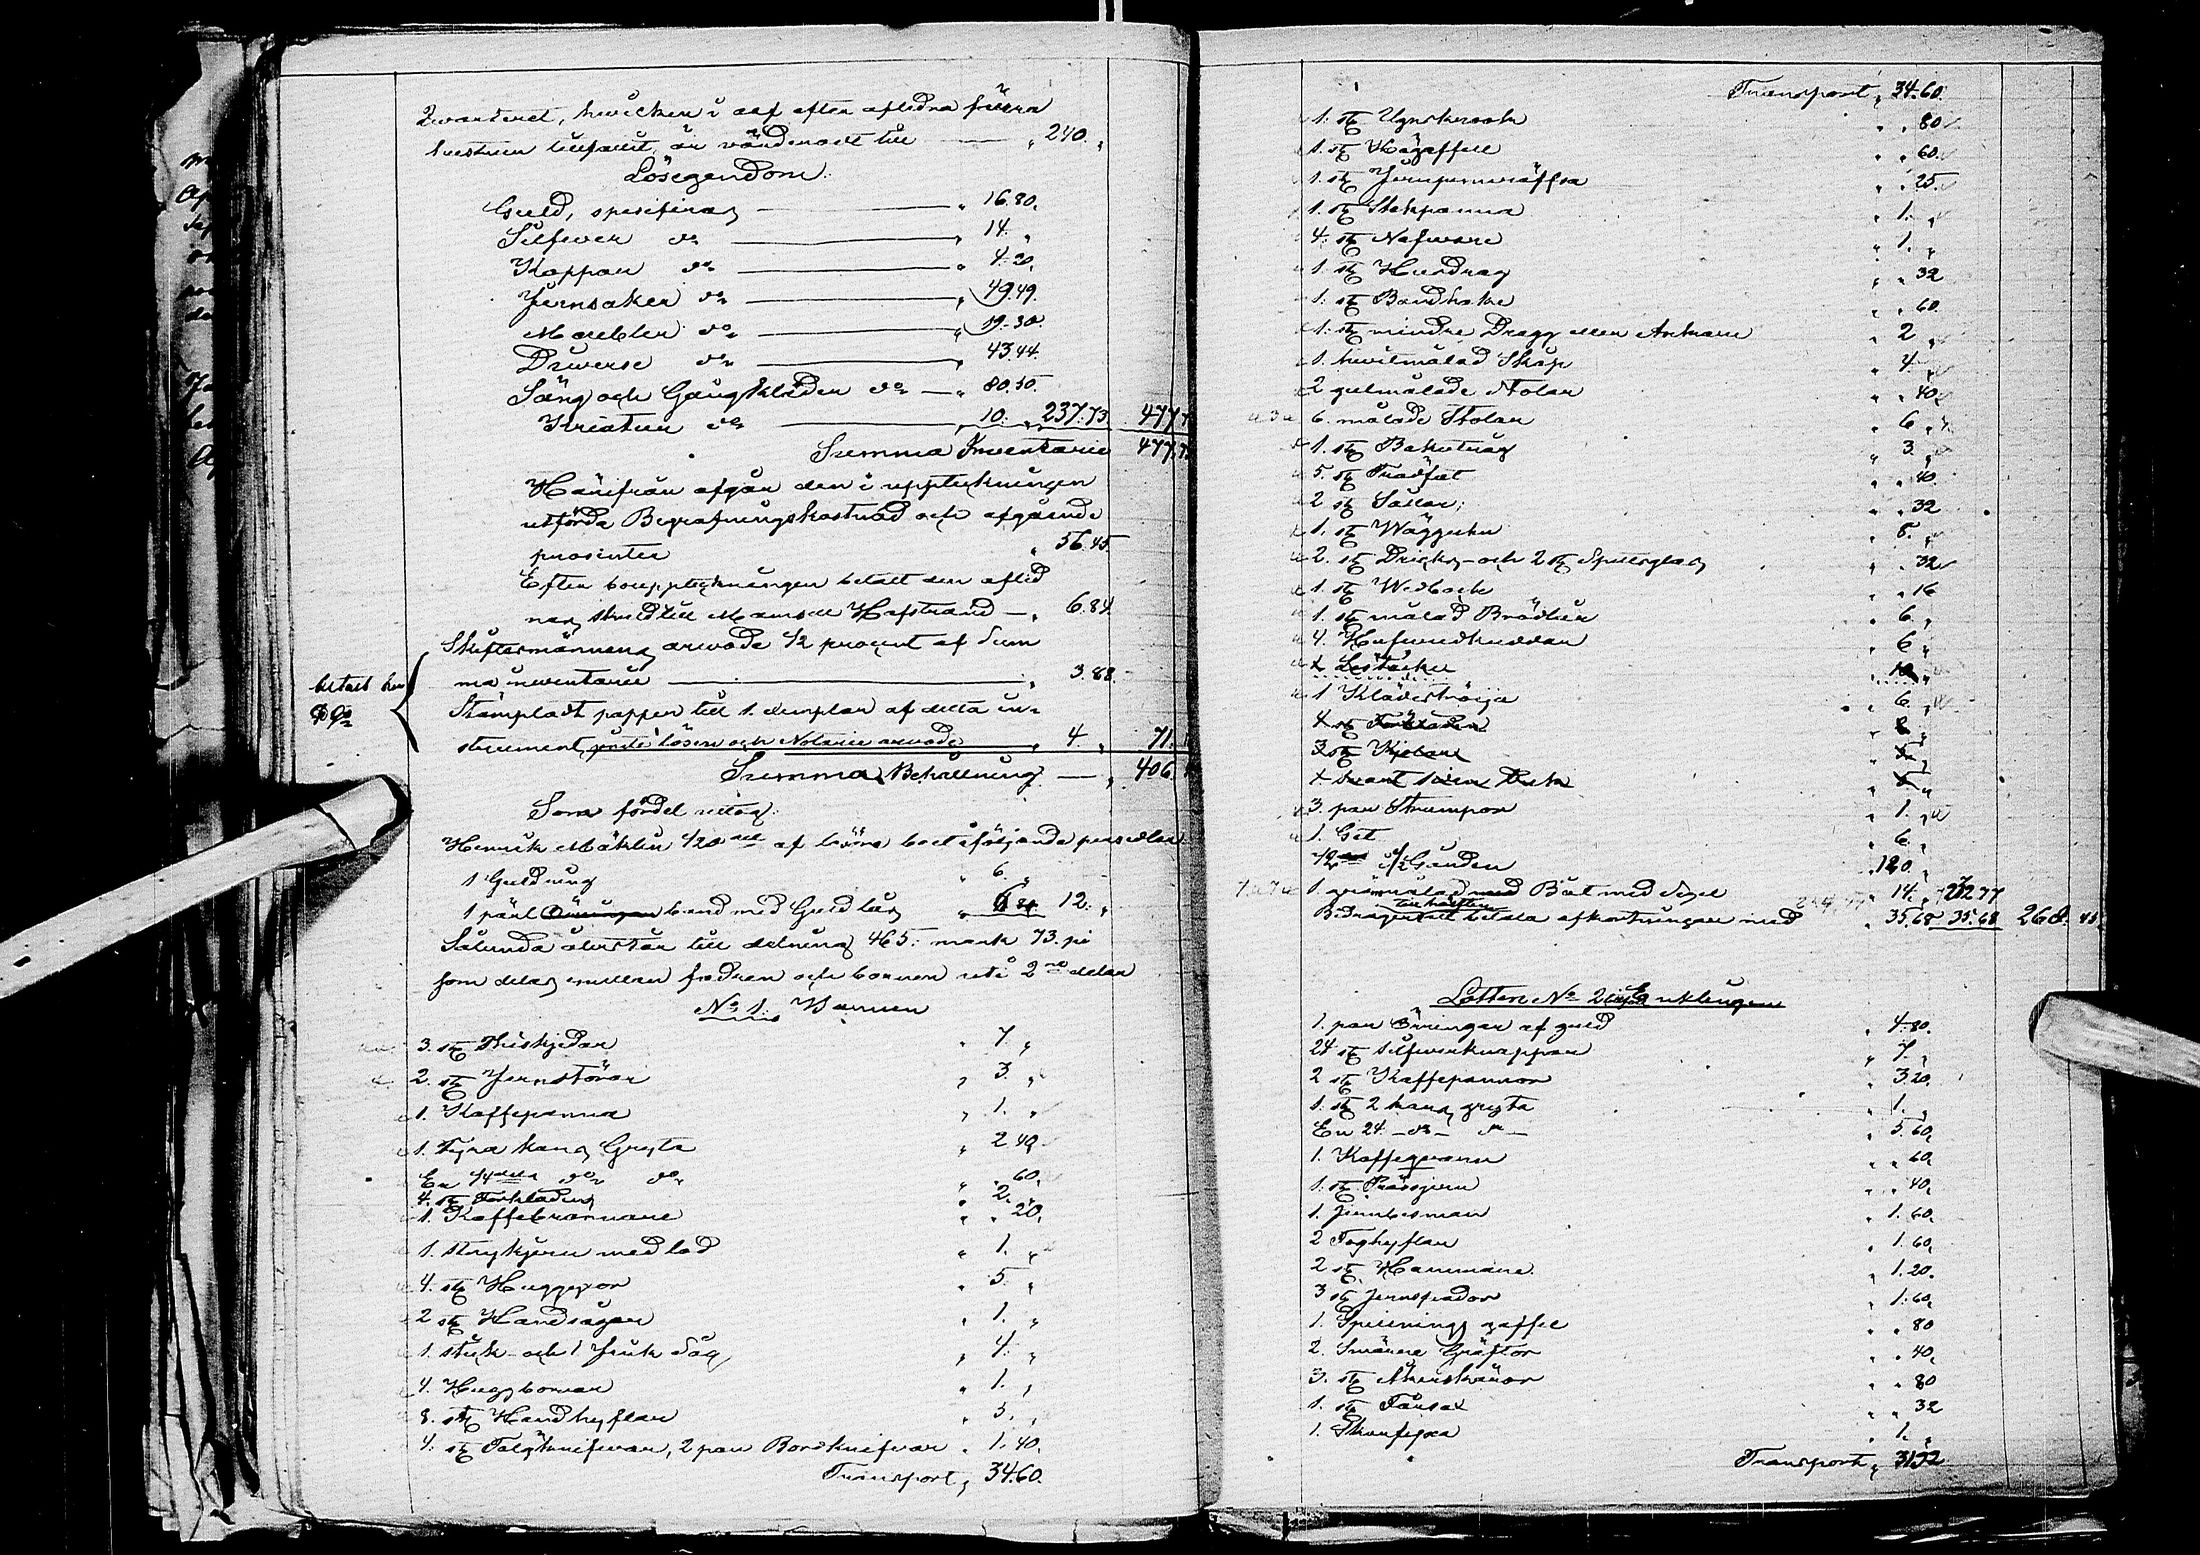 hustrun tillfallit, är värderadt till — „ 240. „
Lösegendom.
Guld, specificerad — „ 16.80.
Silfwer do — „ 14. „
Koppar do — „ 4.20.
Jernsaker do — „ 49.49.
Möbler do — „ 19.30.
Diverse do — „ 43.44.
Säng och Gångkläder do — „ 80.50.
Kreatur do — „ 10. „ 237.73 477.7
Summa Inventarie 477.7
Härifrån afgår den i uppteckningen
utförda Begrafningskostnad och afgående
prosenter „ 56.45.
Efter bouppteckningen betalt den aflid
nas skuld till Mamsell Hafstrand — „ 6.84.
Skiftesmännens arvode 1/2 procent af Sum
ma inventarie — „ 3.88.
betalt
Stämpladt papper till 1. exemplar af detta in-
strument, lösen och Notarie arvode „ 4. „ 71.
Summa Behållning — „ 406
Som fördel uttog:
Henrik 1/20 del af följande persedlar
1 Guldring „ 6. „
1 band med Guld lås „ 6. 12. „
Sålunda återstår till delning 465. mark 73. pi
som delas emellan fadren och barnen uti 2ne delar
No 1. Barnen
3. st „ 7. „
2. st Jernstörar „ 3. „
1. Kaffepanna „ 1. „
1. Fyra kans Gryta „ 2.40.
En 1/4 dels do do „ 60.
4. st Förkläden „ 2. „
1. Kaffebrännare „ „ 20.
1. strykjern med lod „ 1. „
4. st Huggyxor „ 5. „
2 st Handsågar „ 1. „
1. stick- och 1 Såg „ 4. „
4. Huggborrar „ 1. „
8. st Handhyflar „ 3. „
4. st Täljknifwar, 2 par Bordknifwar „ 1.40.
Transport „ 34.60.
Transport „ 34.60.
1. st Ugnskraka „ „ 80
1. st Högaffel „ „ 60.
1. st „ „ 25.
1. st Stekpanna „ 1. „
4. st Nafware „ 1. „
1. st Husdrag „ „ 32
1. st Bandhake „ „ 60.
1. st mindre Dragg eller Ankare „ 2 „
1. hwitmålad Skåp „ 4. „
2 gulmålade Stolar „ „ 40
6. målade Stolar „ 6. „
1. st Baktråg „ 3. „
5. st Trädfat „ „ 40.
2 st Sållar „ „ 32
1. st Wäggur „ 8. „
2. st Dricks- och 2 st Spetsglas „ „ 32
1. st Wedbock „ „ 16
1. st målad Brödlår „ 6. „
4. Hufwudkuddar „ 6 „
1 „ 10. „
1 Klädeströja „ 6. „
4 st Förkläden „ 2. „
3 st Kjolar
3. par Strumpor „ 1. „
1. Get „ 6. „
1/2 i Gården „ 120. „
1. målad Båt med Segel „ 14. „ 232.77
betala afkortningar med „ 35.68 35.68 268.45
Lotten No 2 Enklingen
1. par Örringar af guld „ 4.80.
24 st silfwerknappar „ 7. „
2 st Kaffepannor „ 3.20.
1. st 2 kans gryta „ 1. „
En 24. do do „ 5.60.
1. Kaffeqvarn „ „ 60.
1. st Pressjern „ „ 40.
1. Jernbesman „ 1.60.
2 Foghyflar „ 1.60.
2 st Hammare „ 1.20.
3 st Jernspador „ 1.60.
1. Spisnings gaffel „ „ 80
2. Smärre Gräftor „ „ 40.
3. st Åkerskäror „ „ 80
1. st Fårsax „ „ 32
1. „ 1. „
Transport „ 31.92